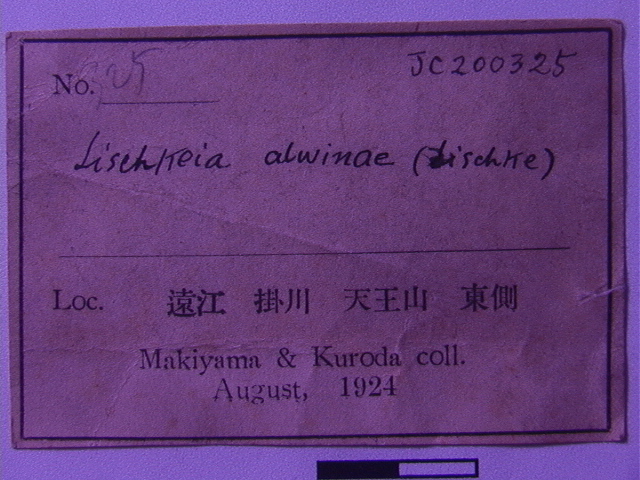 JC200325
No. 325
Lischkeia alwinae (Lischke)
Loc. 遠江 掛川 天王山 東側
Makiyama & Kuroda coll.
August, 1924